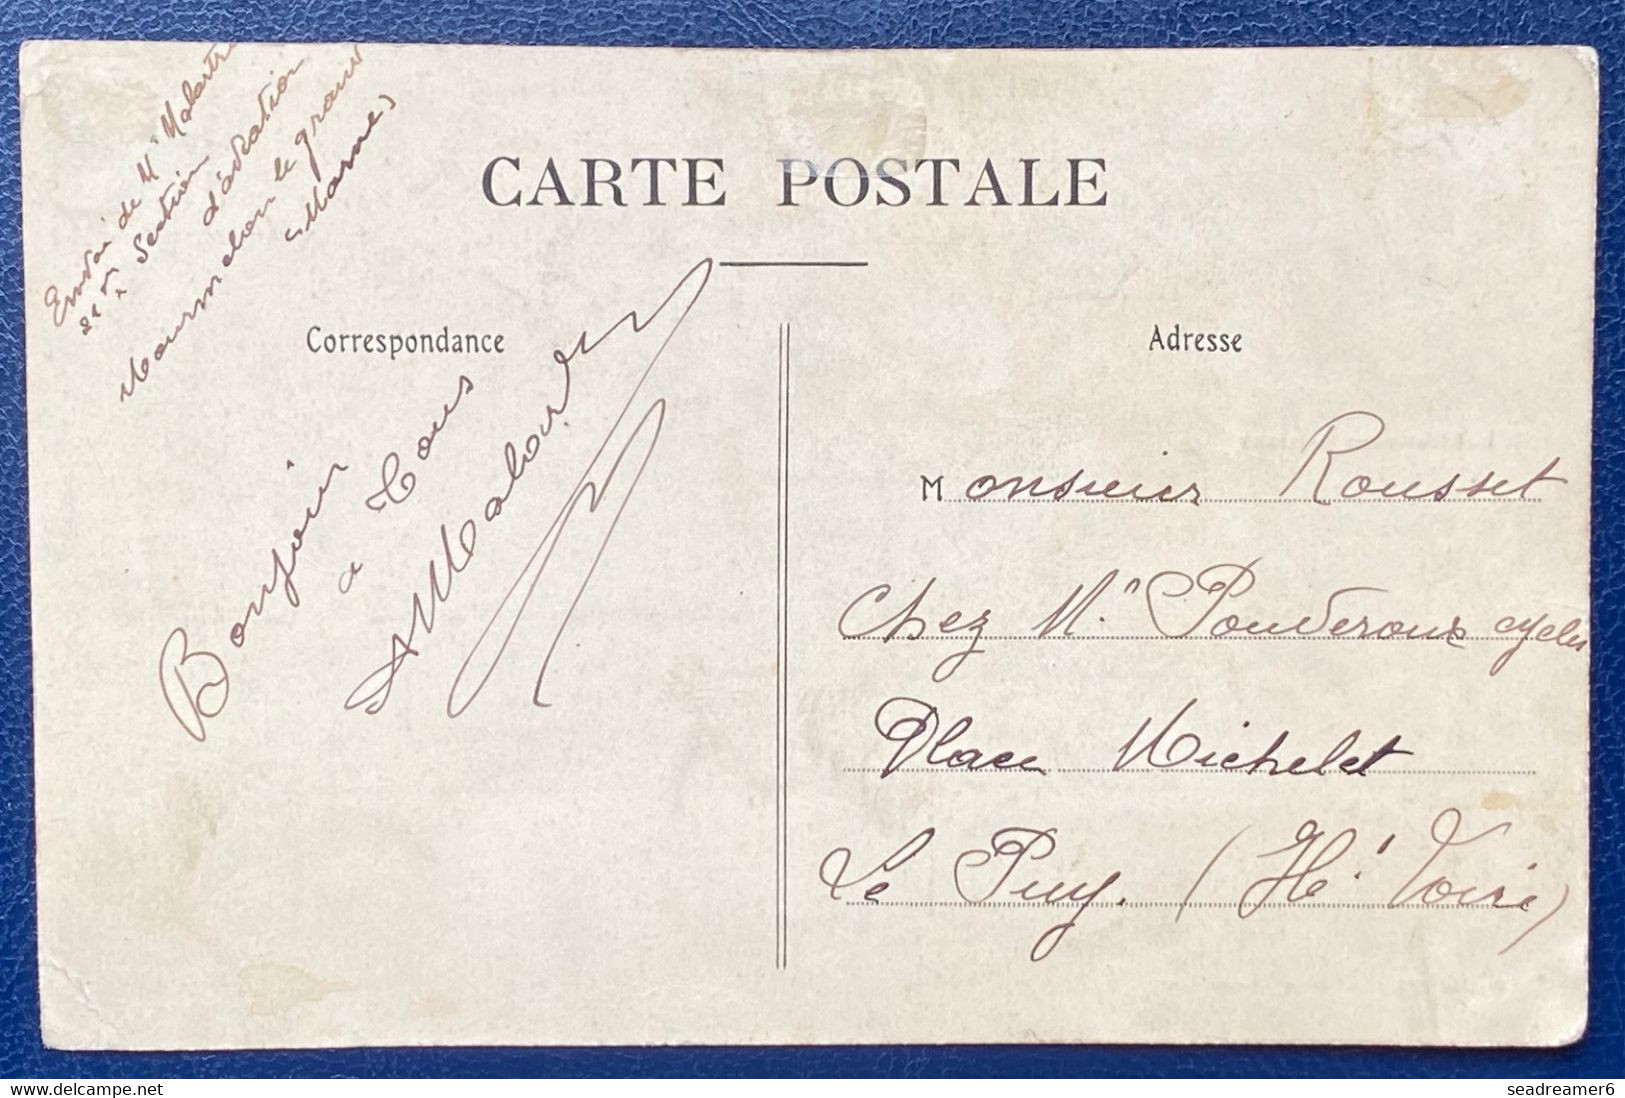 Envoi de Mr
Section
d'aviation
Mourmelon le grand
(Marne)
CARTE POSTALE
Correspondance
Bonjour
a Tous
Adresse
Monsieur Rousset
Chez Mr Pouderoux cycles
Place Michelet
Le Puy. (Hte Loire)
seadreamer6